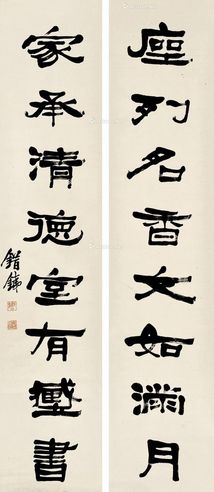 座列名香文如滿月
家承清德室有藏書